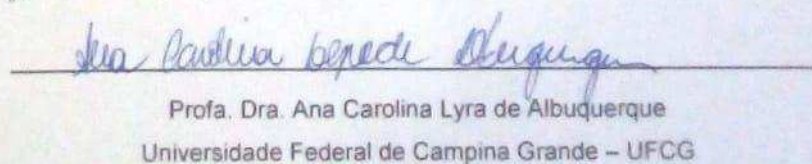 Ana Carolina de Albuquerque
Profa. Dra. Ana Carolina Lyra de Albuquerque
Universidade Federal de Campina Grande – UFCG